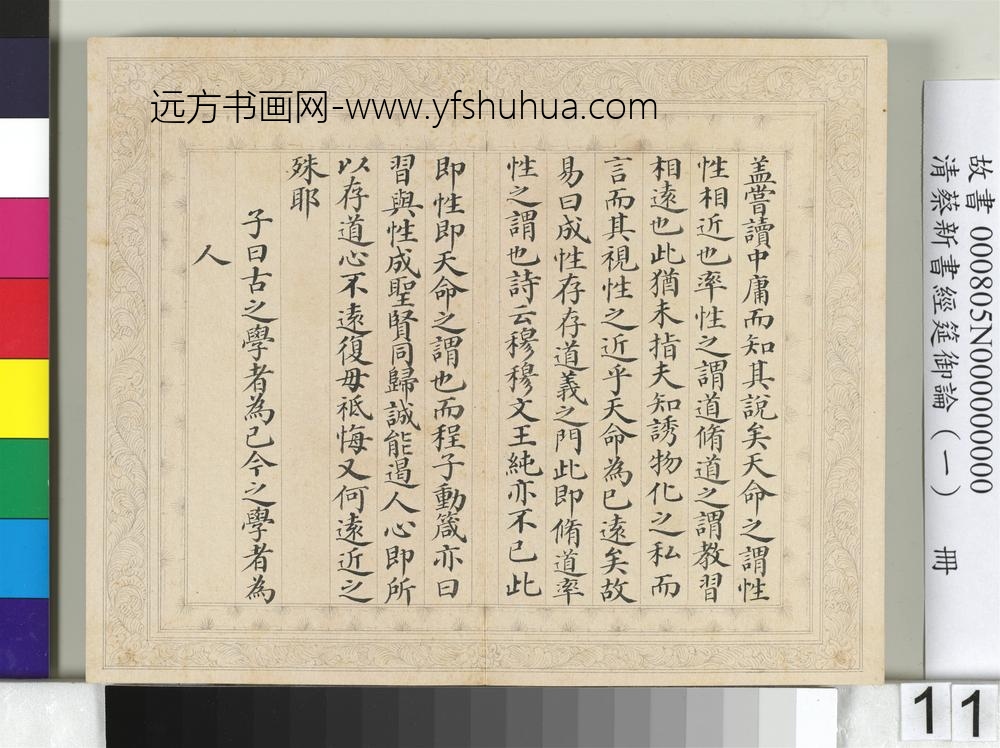 远方书画网-www.yfshuhua.com
盖嘗讀中庸而知其說矣天命之謂性
性相近也率性之謂道脩道之謂教習
相遠也此猶未指夫知誘物化之私而
言而其視性之近乎天命為已遠矣故
易曰成性存存道義之門此即脩道率
性之謂也詩云穆穆文王純亦不已此
即性即天命之謂也而程子動箴亦曰
習與性成聖賢同歸誠能遏人心即所
以存道心不遠復毋祗悔又何遠近之
殊耶
子曰古之學者為己今之學者為
人
故書 000805N000000000
清蔡新書經筵御論（一） 冊
11